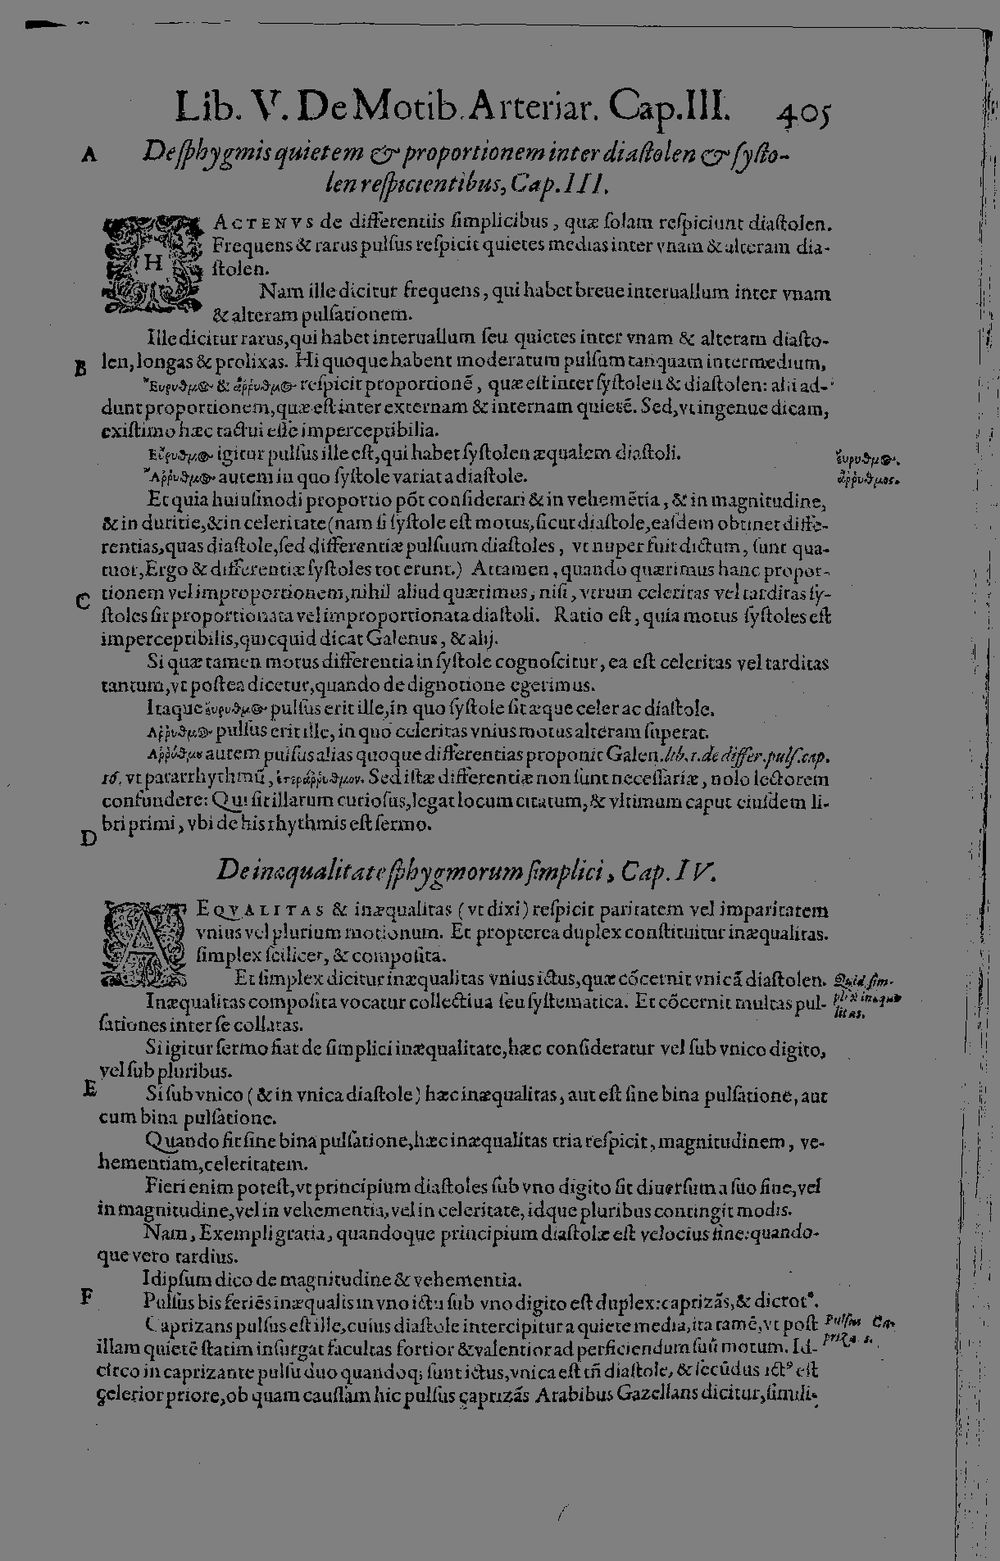 Lib. V. De Motib. Arteriar. Cap. III. 405
A De ſphygmis quietem & proportionem inter diaſtolen & ſyſto-
len reſpicientibus, Cap. III.
HACTENVS de differentiis ſimplicibus, quæ ſolam reſpiciunt diaſtolen.
Frequens & rarus pulſus reſpicit quietes medias inter vnam & alteram dia-
ſtolen.
Nam ille dicitur frequens, qui habet breue interuallum inter vnam
& alteram pulſationem.
Ille dicitur rarus, qui habet interuallum ſeu quietes inter vnam & alteram diaſto-
B len, longas & prolixas. Hi quoque habent moderatum pulſum tanquam intermedium,
Εὔρυθμος & ἄῤῥυθμος reſpicit proportionē, quæ eſt inter ſyſtolen & diaſtolen: alii ad-
dunt proportionem, quæ eſt inter externam & internam quietē. Sed, vt ingenue dicam,
exiſtimo hæc tactui eſſe imperceptibilia.
Εὔρυθμος igitur pulſus ille eſt, qui habet ſyſtolen æqualem diaſtoli.
εὔρυθμος.
Ἄῤῥυθμος autem in quo ſyſtole variat a diaſtole.
ἄῤῥυθμος.
Et quia huiuſmodi proportio pōt conſiderari & in vehemētia, & in magnitudine,
& in duritie, & in celeritate (nam ſi ſyſtole eſt motus, ſicut diaſtole, eaſdem obtinet diffe-
rentias, quas diaſtole, ſed differentiæ pulſuum diaſtoles, vt nuper fuit dictum, ſunt qua-
tuor, Ergo & differentiæ ſyſtoles tot erunt.) Attamen, quando quærimus hanc propor-
C tionem vel improportionem, nihil aliud quærimus, niſi, vtrum celeritas vel tarditas ſy-
ſtoles ſit proportionata vel improportionata diaſtoli. Ratio eſt, quia motus ſyſtoles eſt
imperceptibilis, quicquid dicat Galenus, & alij.
Si quæ tamen motus differentia in ſyſtole cognoſcitur, ea eſt celeritas vel tarditas
tantum, vt poſtea dicetur, quando de dignotione egerimus.
Itaque εὔρυθμος pulſus erit ille, in quo ſyſtole ſit æque celer ac diaſtole.
Ἄῤῥυθμος pulſus erit ille, in quo celeritas vnius motus alteram ſuperat.
Ἀῤῥύθμου autem pulſus alias quoque differentias proponit Galen. lib. 1. de differ. pulſ. cap.
16. vt pararrhythmū, ἑτεράῤῥυθμον. Sed iſtæ differentiæ non ſunt neceſſariæ, nolo lectorem
confundere: Qui ſit illarum curioſus, legat locum citatum, & vltimum caput eiuſdem li-
bri primi, vbi de his rhythmis eſt ſermo.
D
De inæqualitate ſphygmorum ſimplici, Cap. IV.
AEQVALITAS & inæqualitas (vt dixi) reſpicit paritatem vel imparitatem
vnius vel plurium motionum. Et propterea duplex conſtituitur inæqualitas.
ſimplex ſcilicet, & compoſita.
Et ſimplex dicitur inæqualitas vnius ictus, quæ cōcernit vnicā diaſtolen.
Quid ſim-
plex inæqua-
litas.
Inæqualitas compoſita vocatur collectiua ſeu ſyſtematica. Et cōcernit multas pul-
ſationes inter ſe collatas.
Si igitur ſermo fiat de ſimplici inæqualitate, hæc conſideratur vel ſub vnico digito,
vel ſub pluribus.
E Si ſub vnico (& in vnica diaſtole) hæc inæqualitas, aut eſt ſine bina pulſatione, aut
cum bina pulſatione.
Quando fit ſine bina pulſatione, hæc inæqualitas tria reſpicit, magnitudinem, ve-
hementiam, celeritatem.
Fieri enim poteſt, vt principium diaſtoles ſub vno digito ſit diuerſum a ſuo fine, vel
in magnitudine, vel in vehementia, vel in celeritate, idque pluribus contingit modis.
Nam, Exempli gratia, quandoque principium diaſtolæ eſt velocius fine: quando-
que vero tardius.
Idipſum dico de magnitudine & vehementia.
F Pulſus bis feriēs inæqualis in vno ictu ſub vno digito eſt duplex: caprizās, & dicrot⁹.
Caprizans pulſus eſt ille, cuius diaſtole intercipitur a quiete media, ita tamē, vt poſt
Pulſus Ca-
prizās.
illam quietē ſtatim inſurgat facultas fortior & valentior ad perficiendum ſuū motum. Id-
circo in caprizante pulſu duo quandoq; ſunt ictus, vnica eſt tn̄ diaſtole, & ſecūdus ict⁹ eſt
celerior priore, ob quam cauſſam hic pulſus caprizās Arabibus Gazellans dicitur, ſimili-